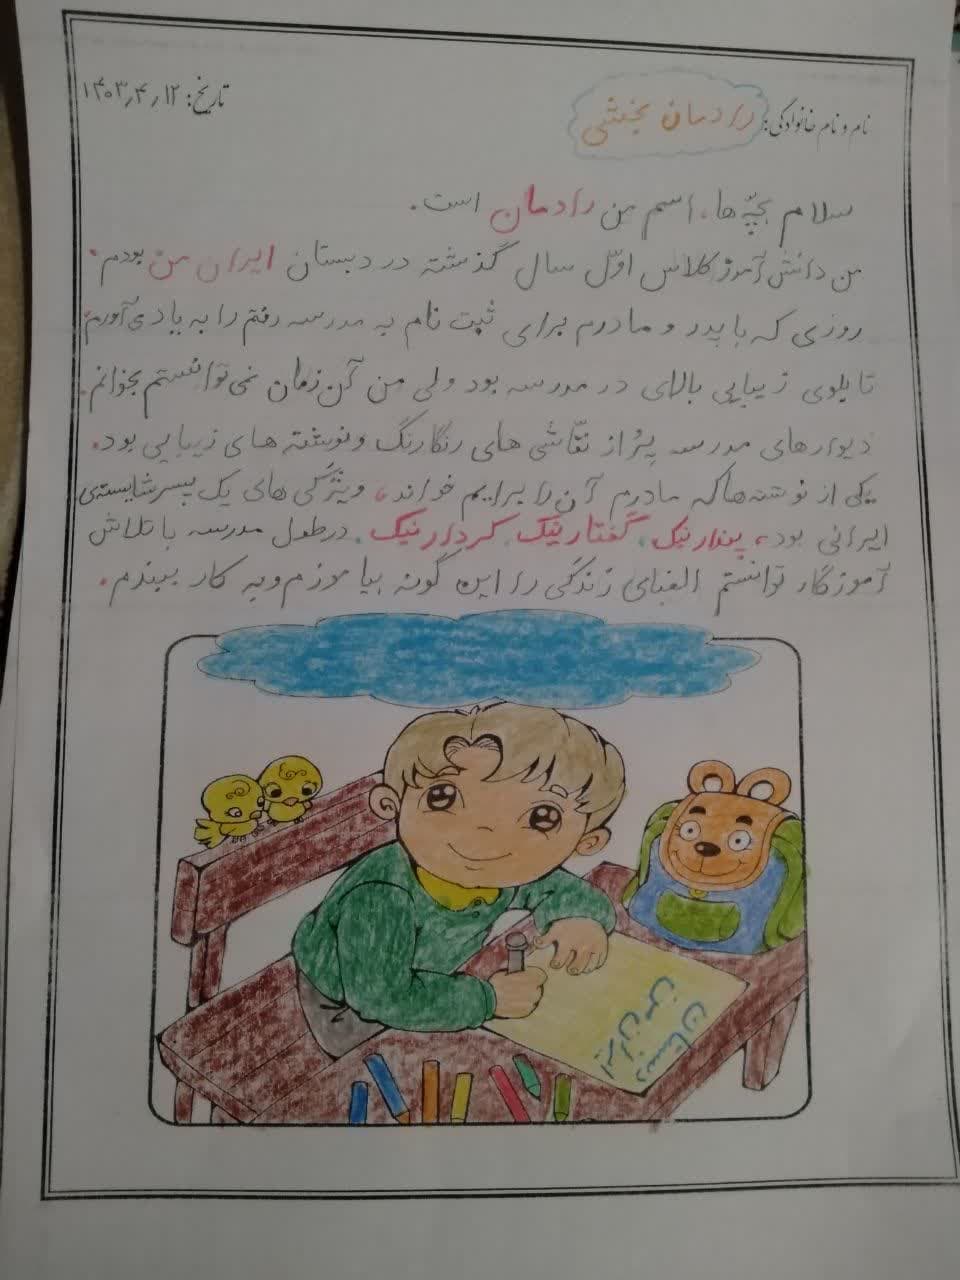 نام و نام خانوادگی: رادمان بخشی
تاریخ: ۱۴۰۳٫۴٫۱۲
سلام بچّه ها، اسم من رادمان است.
من دانش آموز کلاس اوّل سال گذشته در دبستان ایران من بودم.
روزی که با پدر و مادرم برای ثبت نام به مدرسه رفتم را به یاد می آورم.
تابلوی زیبایی بالای در مدرسه بود ولی من آن زمان نمی توانستم بخوانم.
دیوارهای مدرسه پُر از نقّاشی های رنگارنگ و نوشته های زیبایی بود.
یکی از نوشته ها که مادرم آن را برایم خواند، ویژگی های یک پسر شایسته ی
ایرانی بود، پندار نیک، گفتار نیک، کردار نیک. در طول مدرسه با تلاش
آموزگار توانستم الفبای زندگی را این گونه بیاموزم و به کار ببندم.
دبستان
ایران من